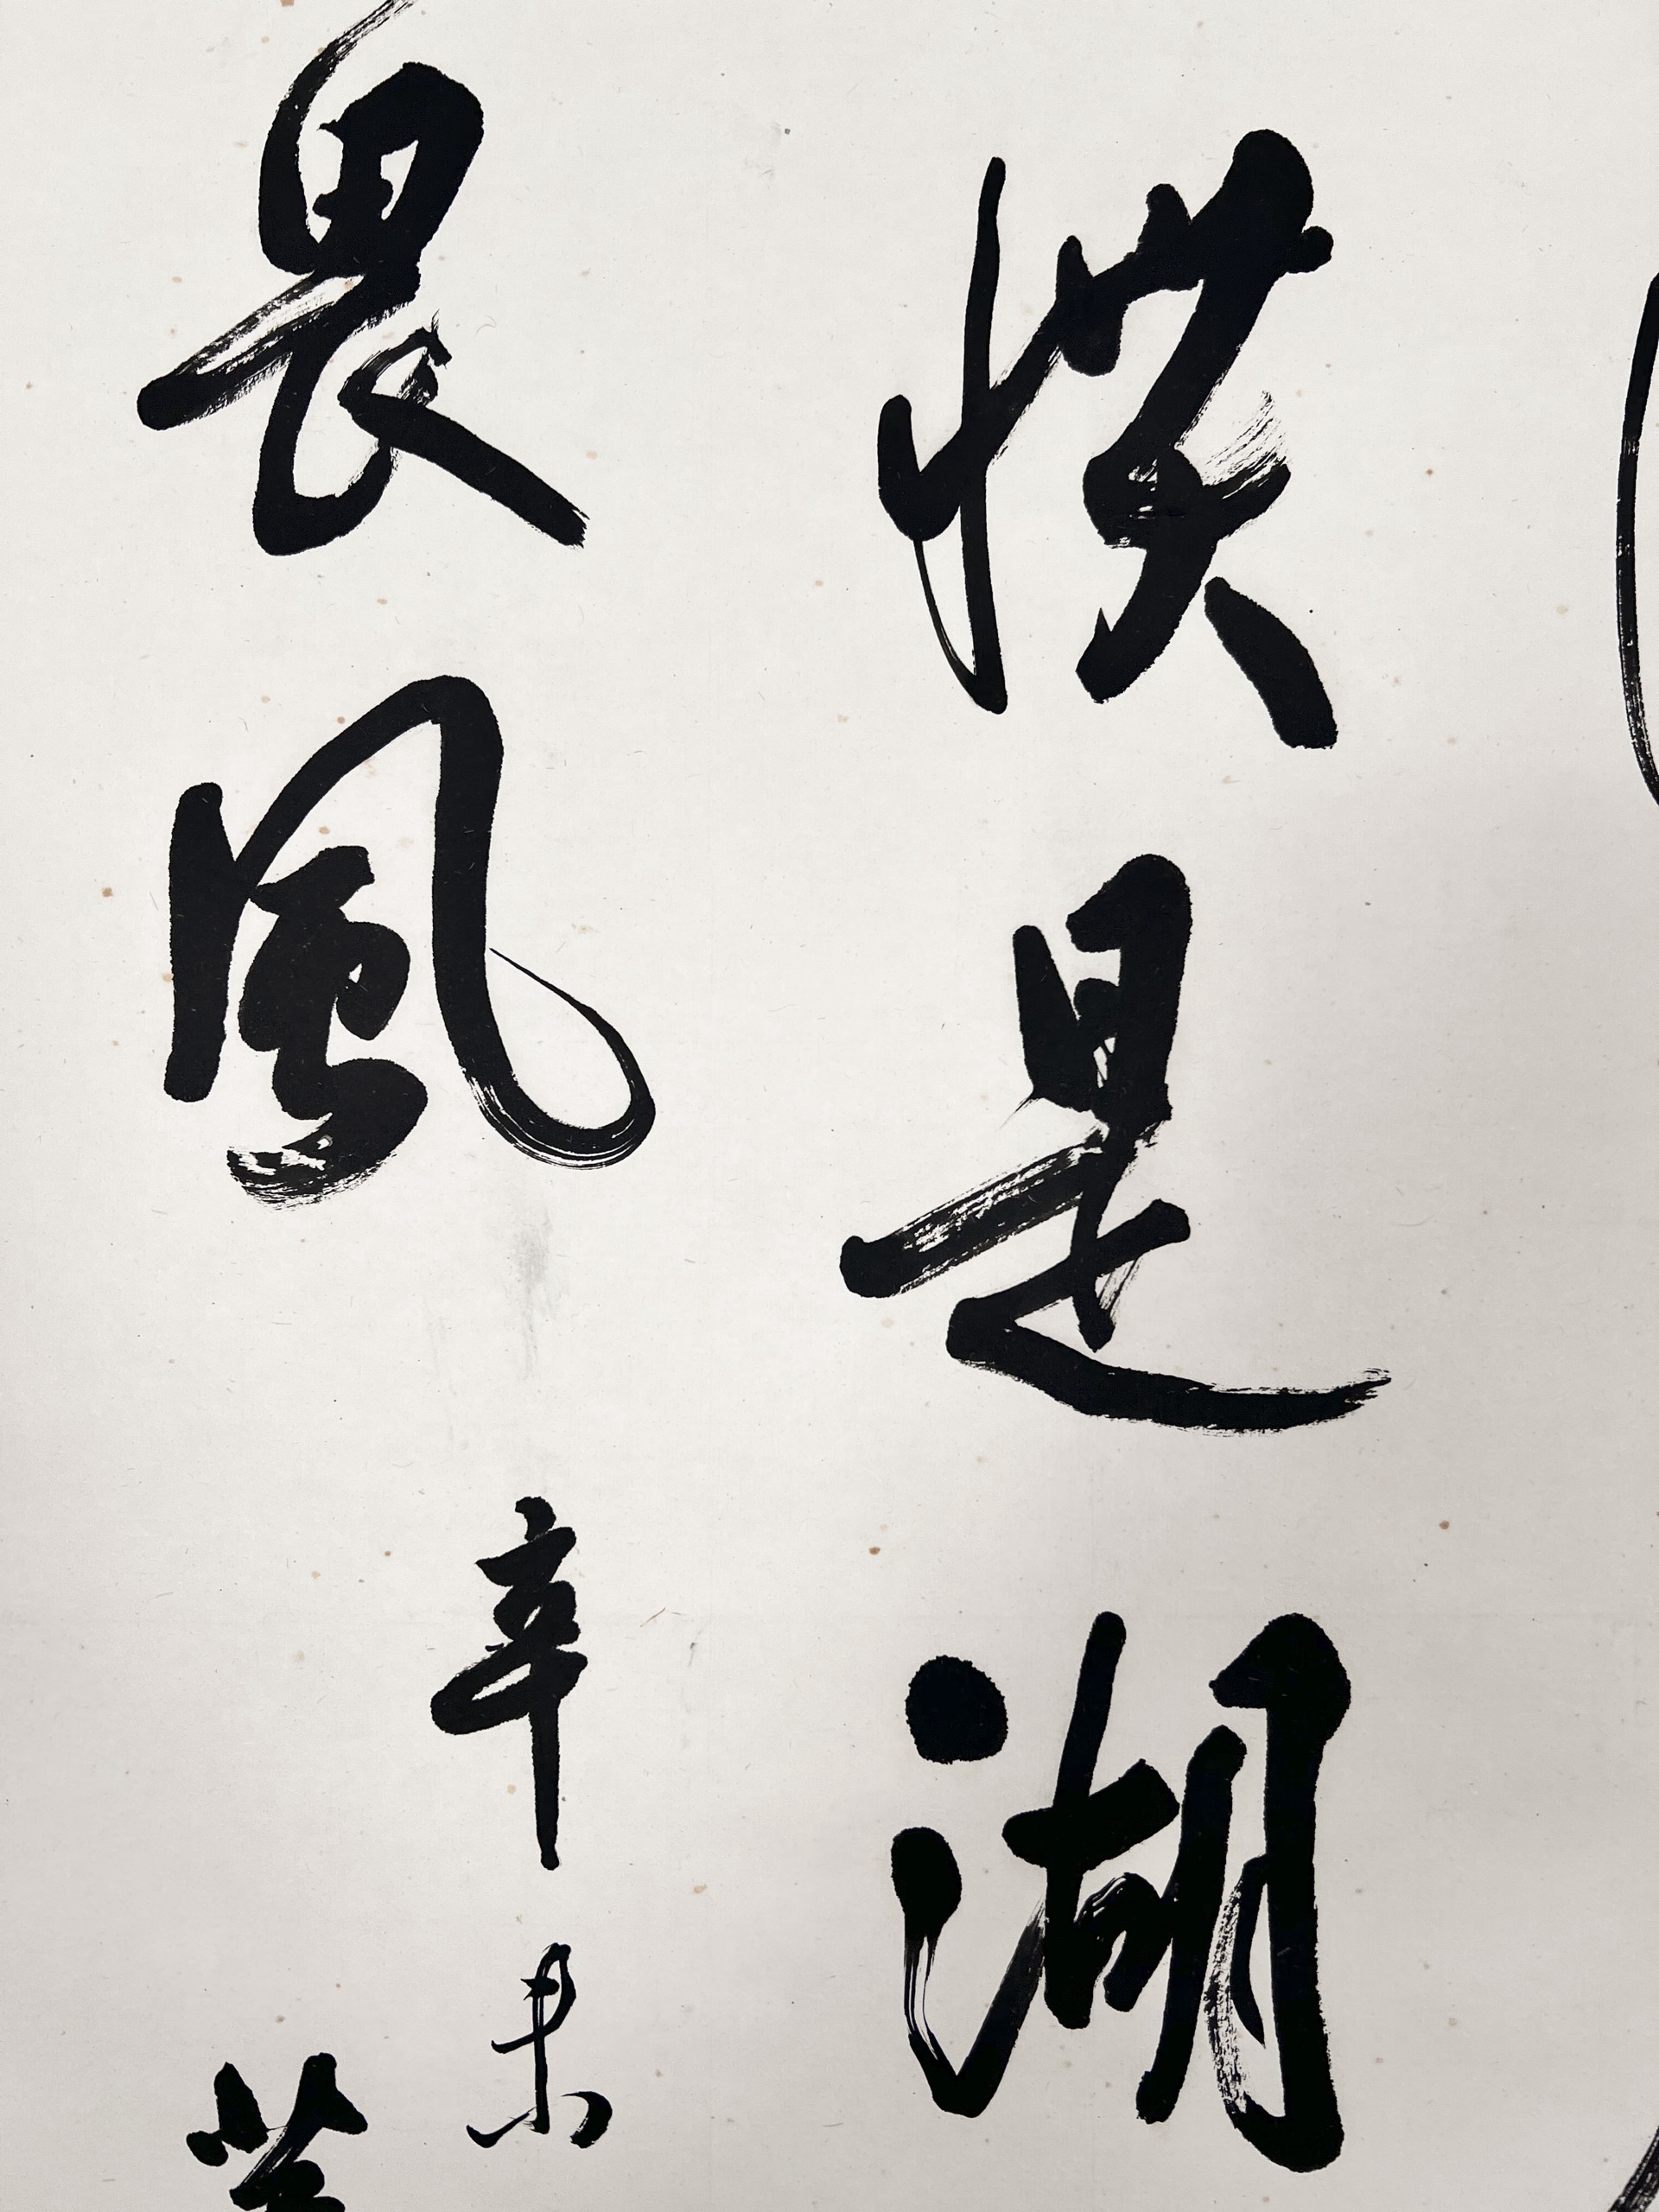 慣是湖
畏風
辛未